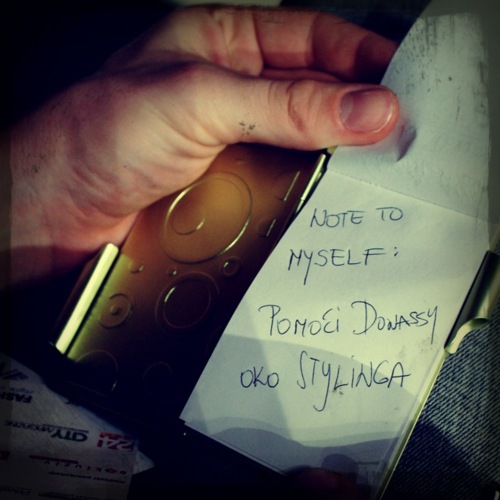 NOTE TO
MYSELF:
POMOĆI DONASSY
OKO STYLINGA
CITY MAGAZINE